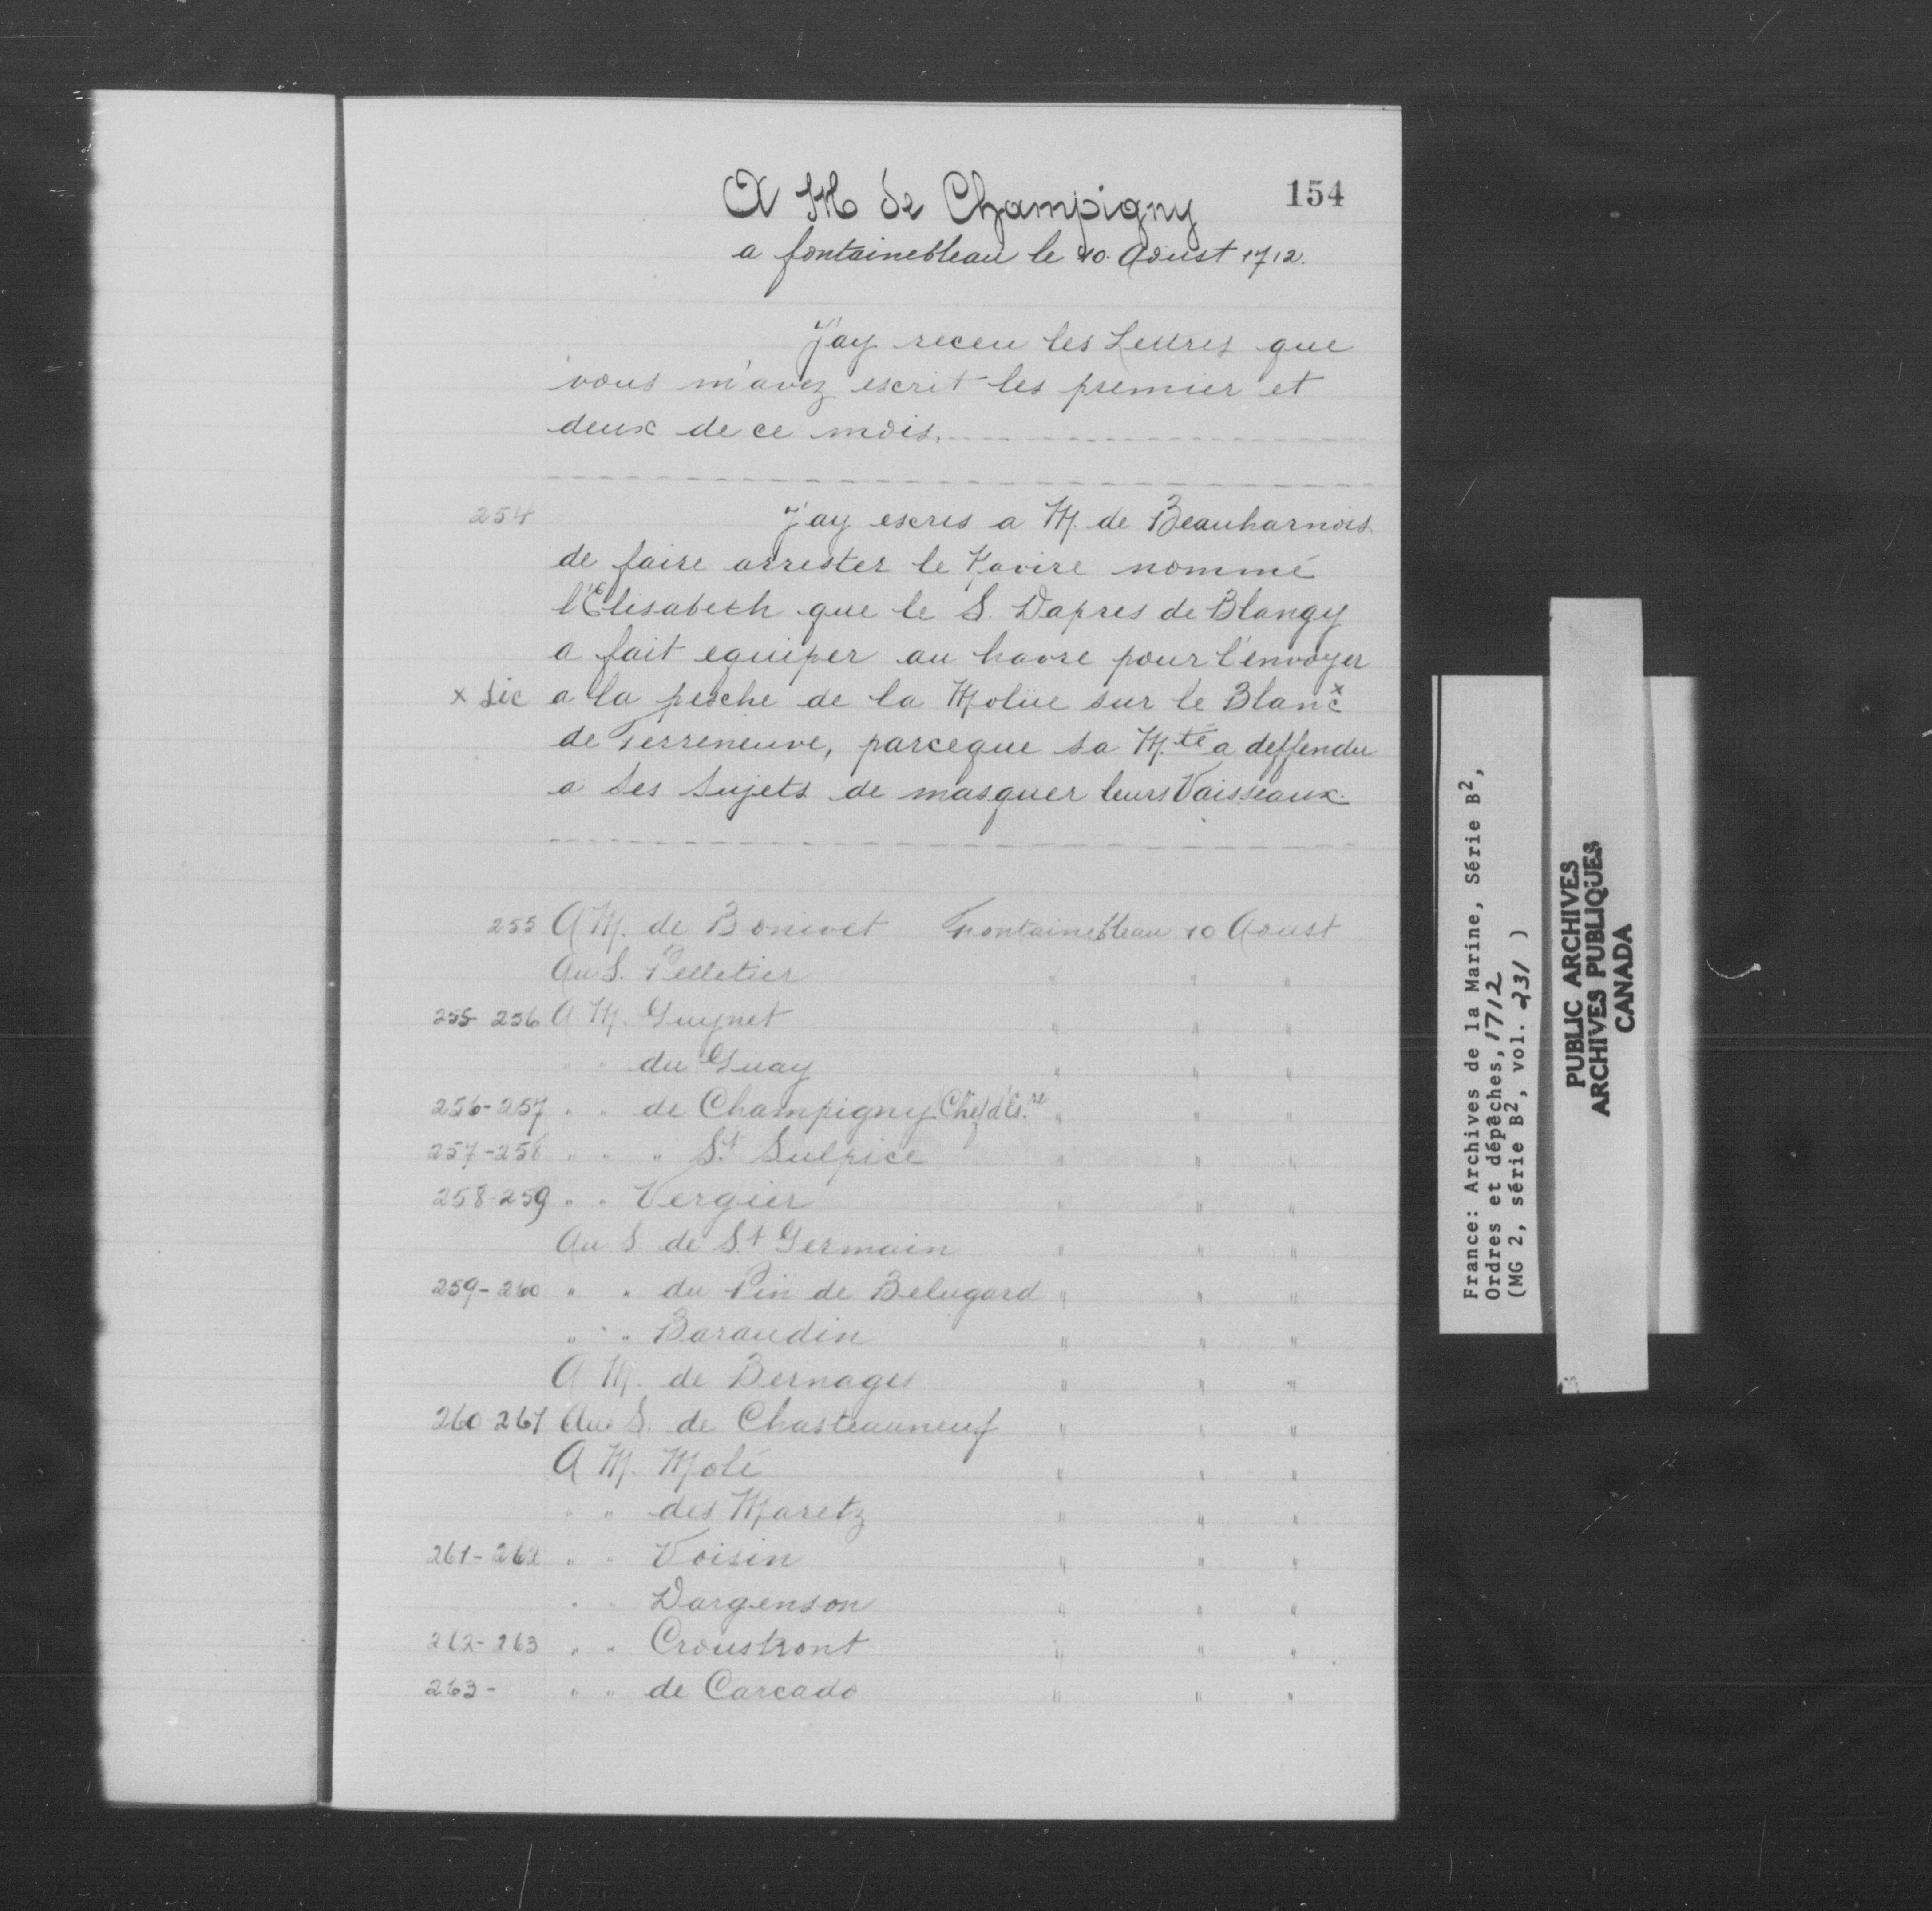 154
A M de Champigny
a fontainebleau le 10. Aoust 1712.
J'ay receu les Lettres que
vous m'avez escrit les premier et
deux de ce mois.
254 J'ay escris a M. de Beauharnois
de faire arrester le Navire nommé
l'Elisabeth que le S. Dapres de Blangy
a fait equiper au havre pour l'envoyer
x Sic a la pesche de la Molüe sur le Blanc x
de Terreneuve, parceque sa M.té a deffendu
a ses sujets de masquer leurs Vaisseaux.
255 A M. de Bonivet Fontainebleau 10 Aoust
Au S. Pelletier " " "
255-256 A M. Guynet " " "
" " du Guay " " "
256-257 " " de Champigny Chef d'Es.re " " "
257-258 " " " St Sulpice " " "
258-259 " " Vergier " " "
Au S. de St Germain " " "
259-260 " " du Pin de Belugard " " "
" " " Baraudin " " "
A M. de Bernages " " "
260-261 Au S. de Chasteauneuf " " "
A M. Molé " " "
" " des Maretz " " "
261-262 " " Voisin " " "
" " Dargenson " " "
262-263 " " Croustront " " "
263- " " de Carcado " " "
France: Archives de la Marine, Série B2,
Ordres et dépêches, 1712
(MG 2, série B2, vol. 231 )
PUBLIC ARCHIVES
ARCHIVES PUBLIQUES
CANADA